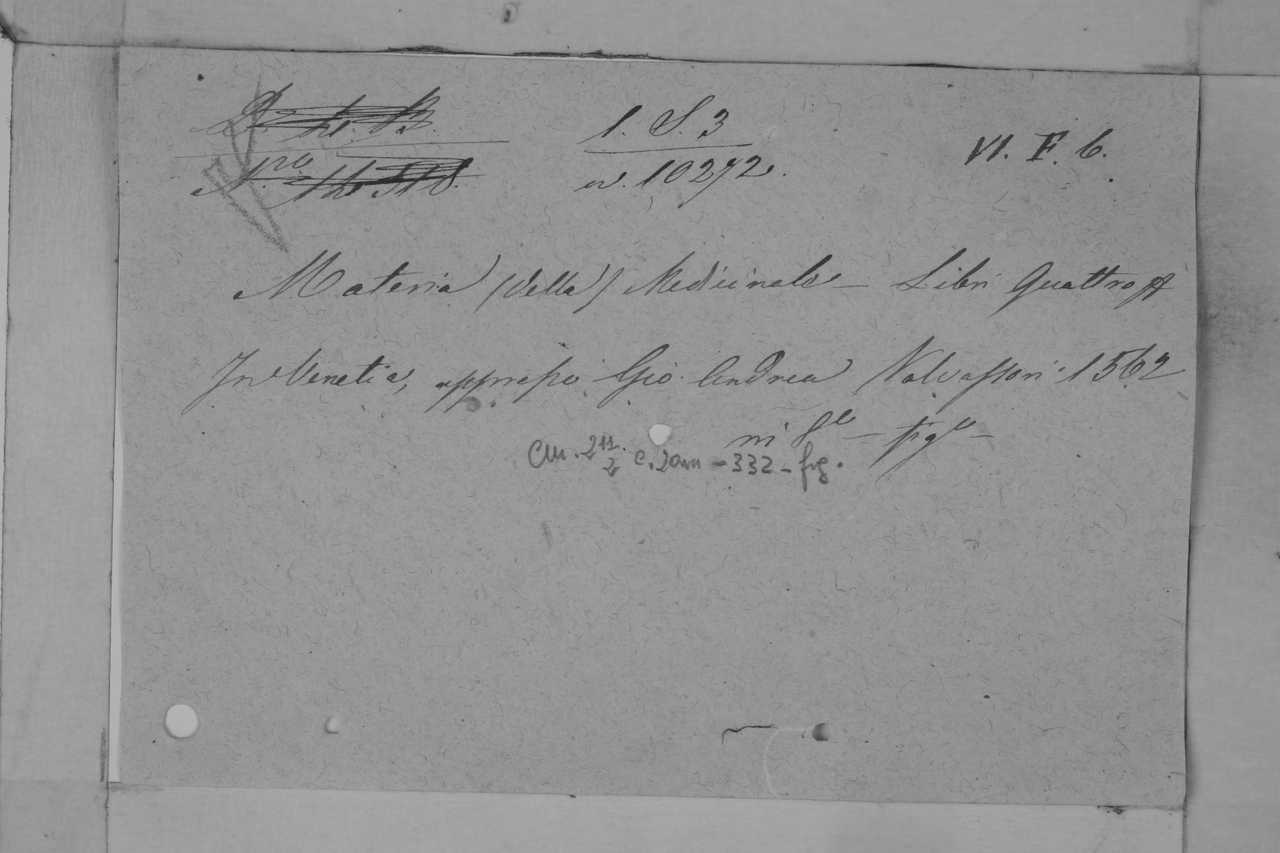 1. S. 3
n. 10272.
VI. F. 6.
Materia (della) Medicinale - Libri Quattro
In Venetia, appresso Gio. Andrea Valvassori 1562
in 8° - fig°-
Cm. 21 1/2 c. 2 ann - 332 - fig.